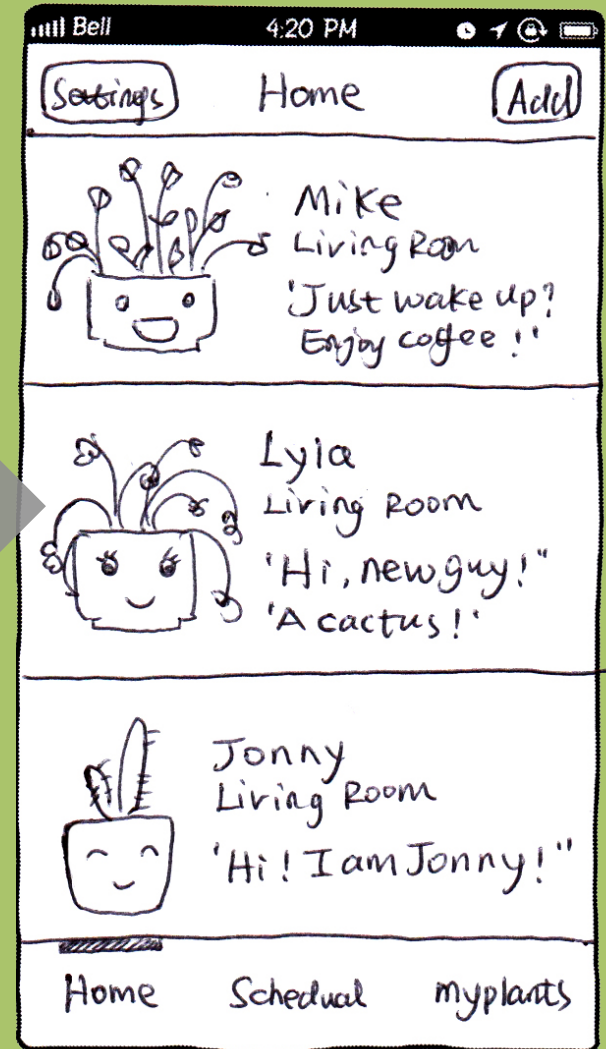 Bell 4:20 PM
Settings Home Add
Mike
Living Room
'Just wake up?
Enjoy coffee!'
Lyla
Living Room
'Hi, new guy!"
'A cactus!'
Jonny
Living Room
'Hi! I am Jonny!"
Home Schedual myplants